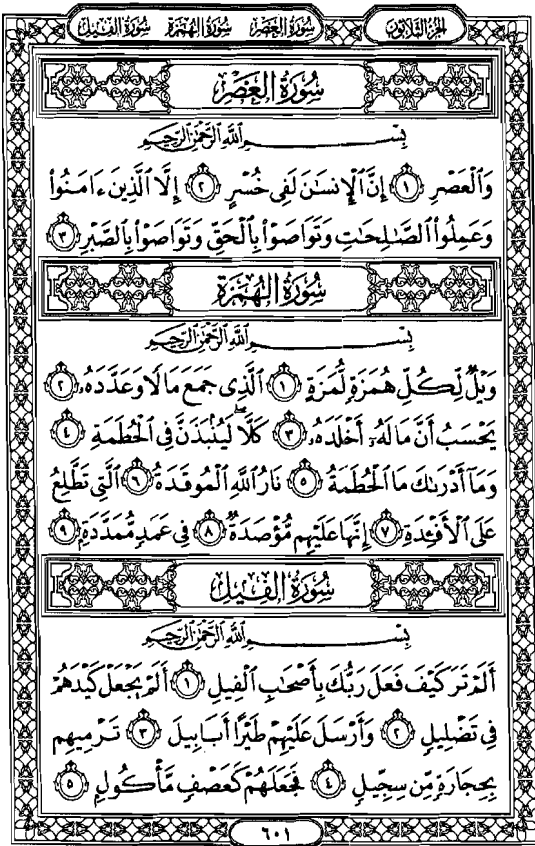 الجزء الثلاثون سورة العصر سورة الهمزة سورة الفيل
سُورَةُ العَصْرِ
بِسْمِ اللَّهِ الرَّحْمَٰنِ الرَّحِيمِ
وَٱلْعَصْرِ ١ إِنَّ ٱلْإِنسَٰنَ لَفِى خُسْرٍ ٢ إِلَّا ٱلَّذِينَ ءَامَنُوا۟
وَعَمِلُوا۟ ٱلصَّٰلِحَٰتِ وَتَوَاصَوْا۟ بِٱلْحَقِّ وَتَوَاصَوْا۟ بِٱلصَّبْرِ ٣
سُورَةُ الهُمَزَةِ
بِسْمِ اللَّهِ الرَّحْمَٰنِ الرَّحِيمِ
وَيْلٌ لِّكُلِّ هُمَزَةٍ لُّمَزَةٍ ١ ٱلَّذِى جَمَعَ مَالًا وَعَدَّدَهُۥ ٢
يَحْسَبُ أَنَّ مَالَهُۥٓ أَخْلَدَهُۥ ٣ كَلَّا ۖ لَيُنۢبَذَنَّ فِى ٱلْحُطَمَةِ ٤
وَمَآ أَدْرَىٰكَ مَا ٱلْحُطَمَةُ ٥ نَارُ ٱللَّهِ ٱلْمُوقَدَةُ ٦ ٱلَّتِى تَطَّلِعُ
عَلَى ٱلْأَفْـِٔدَةِ ٧ إِنَّهَا عَلَيْهِم مُّؤْصَدَةٌ ٨ فِى عَمَدٍ مُّمَدَّدَةٍۭ ٩
سُورَةُ الفِيلِ
بِسْمِ اللَّهِ الرَّحْمَٰنِ الرَّحِيمِ
أَلَمْ تَرَ كَيْفَ فَعَلَ رَبُّكَ بِأَصْحَٰبِ ٱلْفِيلِ ١ أَلَمْ يَجْعَلْ كَيْدَهُمْ
فِى تَضْلِيلٍ ٢ وَأَرْسَلَ عَلَيْهِمْ طَيْرًا أَبَابِيلَ ٣ تَرْمِيهِم
بِحِجَارَةٍ مِّن سِجِّيلٍ ٤ فَجَعَلَهُمْ كَعَصْفٍ مَّأْكُولٍۭ ٥
٦٠١